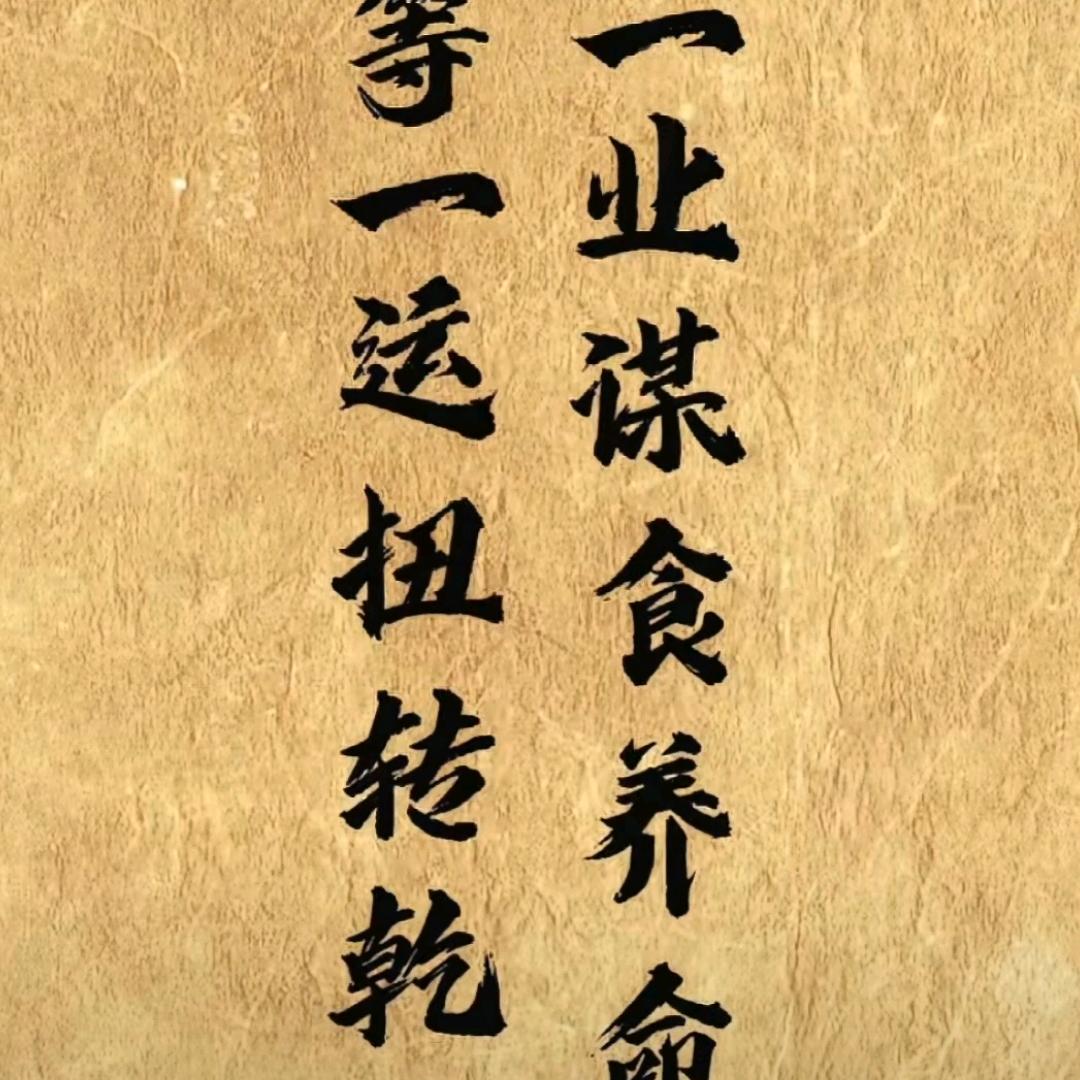 一业谋食养命
等一运扭转乾